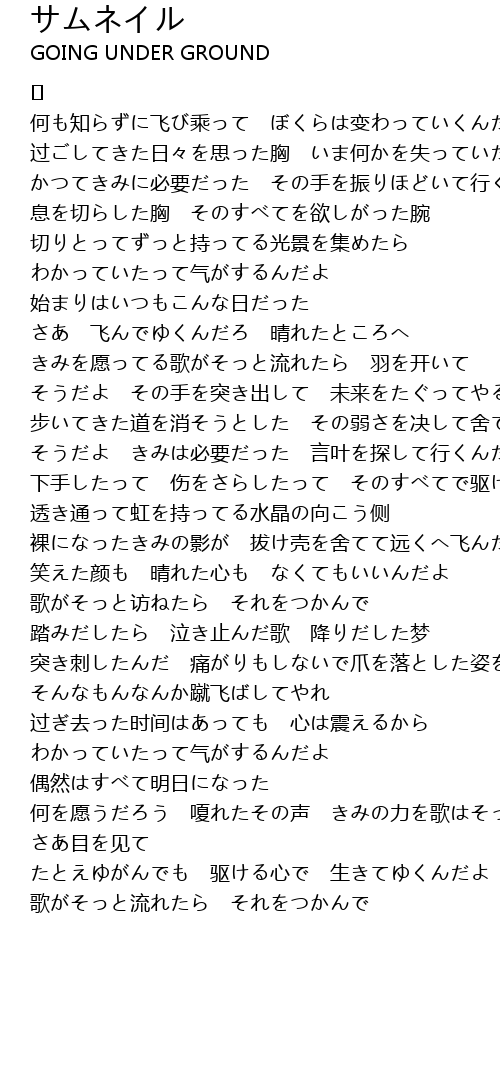 サムネイル
GOING UNDER GROUND
[]
何も知らずに飞び乗って　ぼくらは変わっていくんだ
过ごしてきた日々を思った胸　いま何かを失ってい
かつてきみに必要だった　その手を振りほどいて行く
息を切らした胸　そのすべてを欲しがった腕
切りとってずっと持ってる光景を集めたら
わかっていたって气がするんだよ
始まりはいつもこんな日だった
さあ　飞んでゆくんだろ　晴れたところへ
きみを愿ってる歌がそっと流れたら　羽を开いて
そうだよ　その手を突き出して　未来をたぐってやる
歩いてきた道を消そうとした　その弱さを决して舍て
そうだよ　きみは必要だった　言叶を探して行くんだ
下手したって　伤をさらしたって　そのすべてで駆け
透き通って虹を持ってる水晶の向こう侧
裸になったきみの影が　抜け壳を舍てて远くへ飞んだ
笑えた颜も　晴れた心も　なくてもいいんだよ
歌がそっと访ねたら　それをつかんで
踏みだしたら　泣き止んだ歌　降りだした梦
突き刺したんだ　痛がりもしないで爪を落とした姿を
そんなもんなんか蹴飞ばしてやれ
过ぎ去った时间はあっても　心は震えるから
わかっていたって气がするんだよ
偶然はすべて明日になった
何を愿うだろう　嗄れたその声　きみの力を歌はそっ
さあ目を见て
たとえゆがんでも　驱ける心で　生きてゆくんだよ
歌がそっと流れたら　それをつかんで